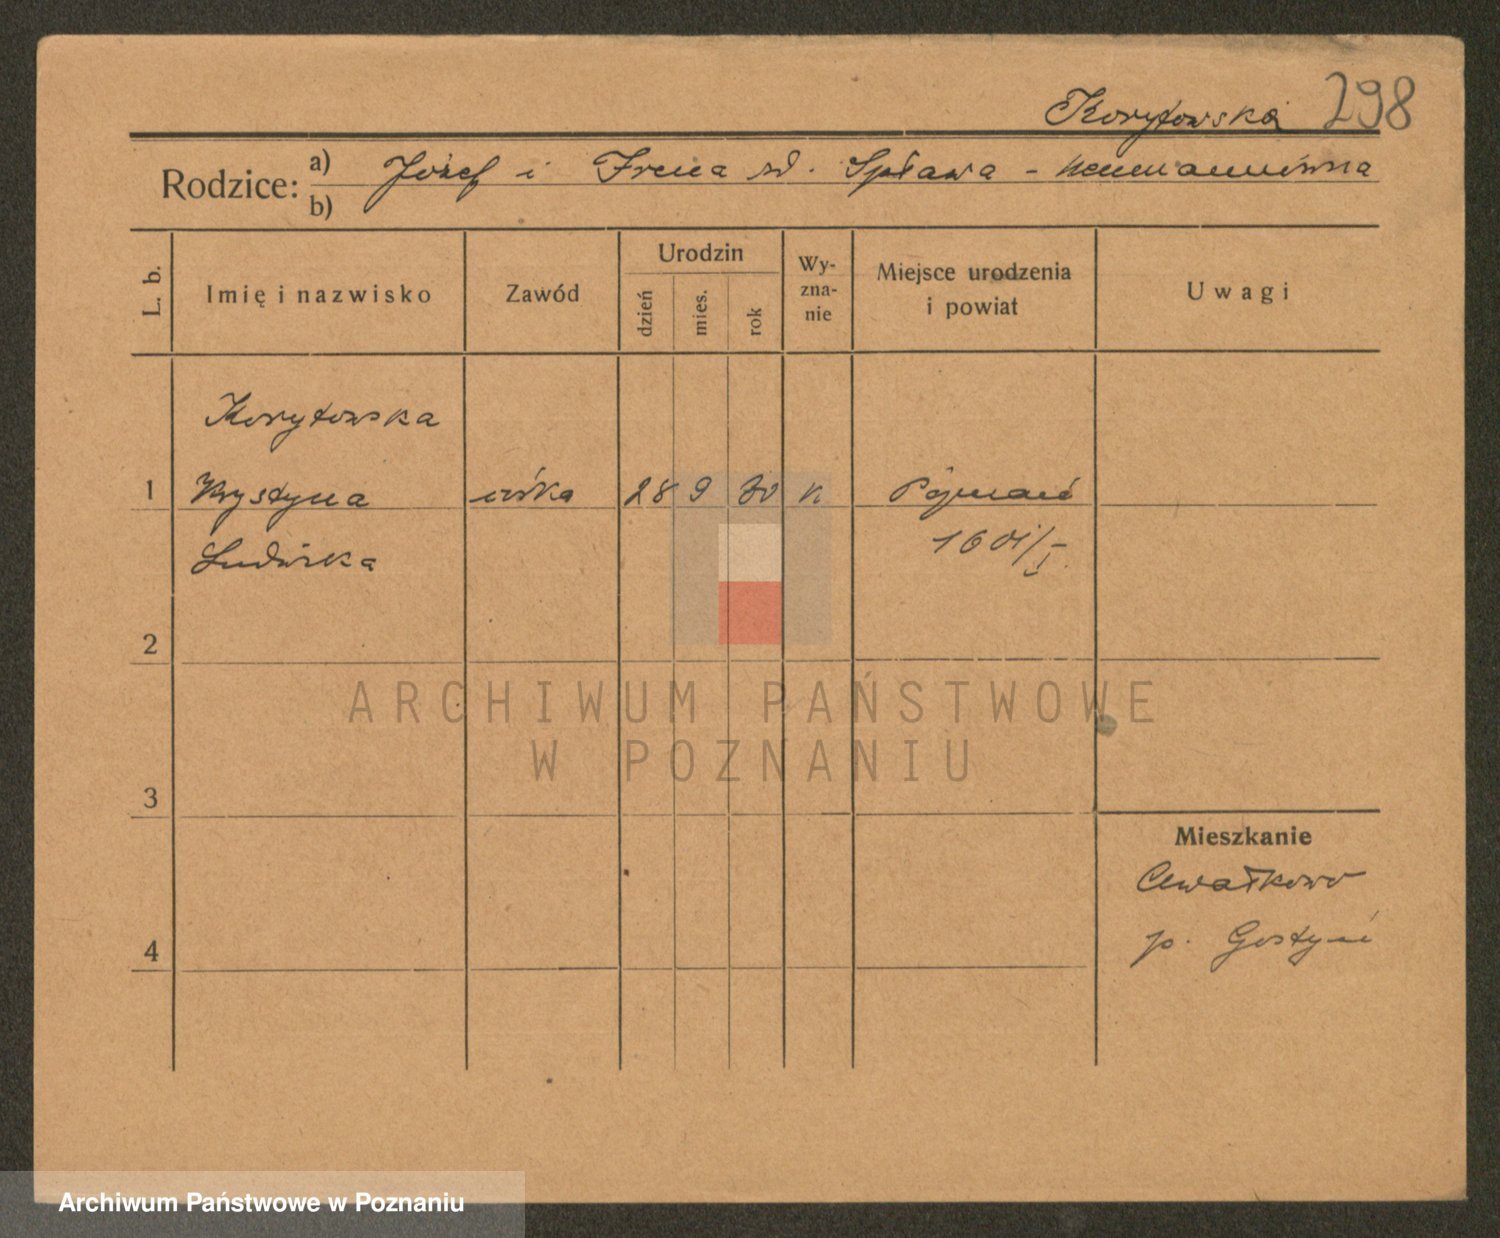 Korytowska 298
Rodzice: a) Józef i Irena zd. Spława - Neumanówna
b)
L. b. Imię i nazwisko Zawód Urodzin dzień mies. rok Wy-zna-nie Miejsce urodzenia i powiat Uwagi
Korytowska
1 Krystyna córka 28 9 30 k Poznań
Ludwika 1601/I.
2
ARCHIWUM PAŃSTWOWE
W POZNANIU
3
Mieszkanie
Chwałkowo
4 p. Gostyń
Archiwum Państwowe w Poznaniu